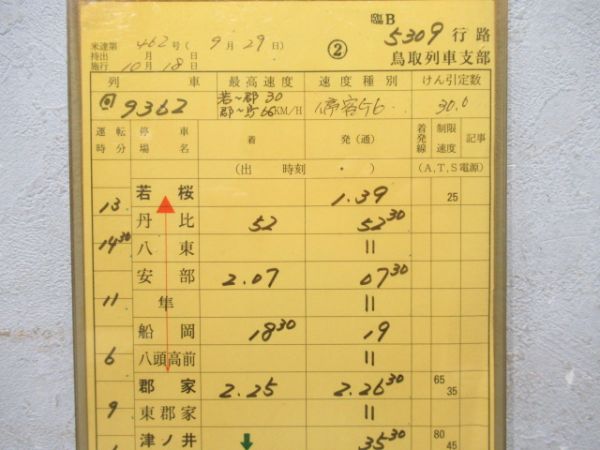 臨B
米達第 462 号 ( 9月 29日 )
5309 行路
持出 月 日
②
鳥取列車支部
施行 10月 18日
列 車 最高速度 速度種別 けん引定数
回 9362 若〜郡 30 郡〜鳥 66 KM/H 30.0
運転時分 停車場名 着 発(通) 着発線 制限速度 記事
(出 時刻 ・ ) (A,T,S電源)
若桜 1.39 25
13
丹比 52 52 30
14 30
八東 〃
安部 2.07 07 30
11 隼 〃
船岡 18 30 19
6 八頭高前 〃
郡家 2.25 2.26 30 65 35
9 東郡家 〃
津ノ井 ↓ 35 30 80 45